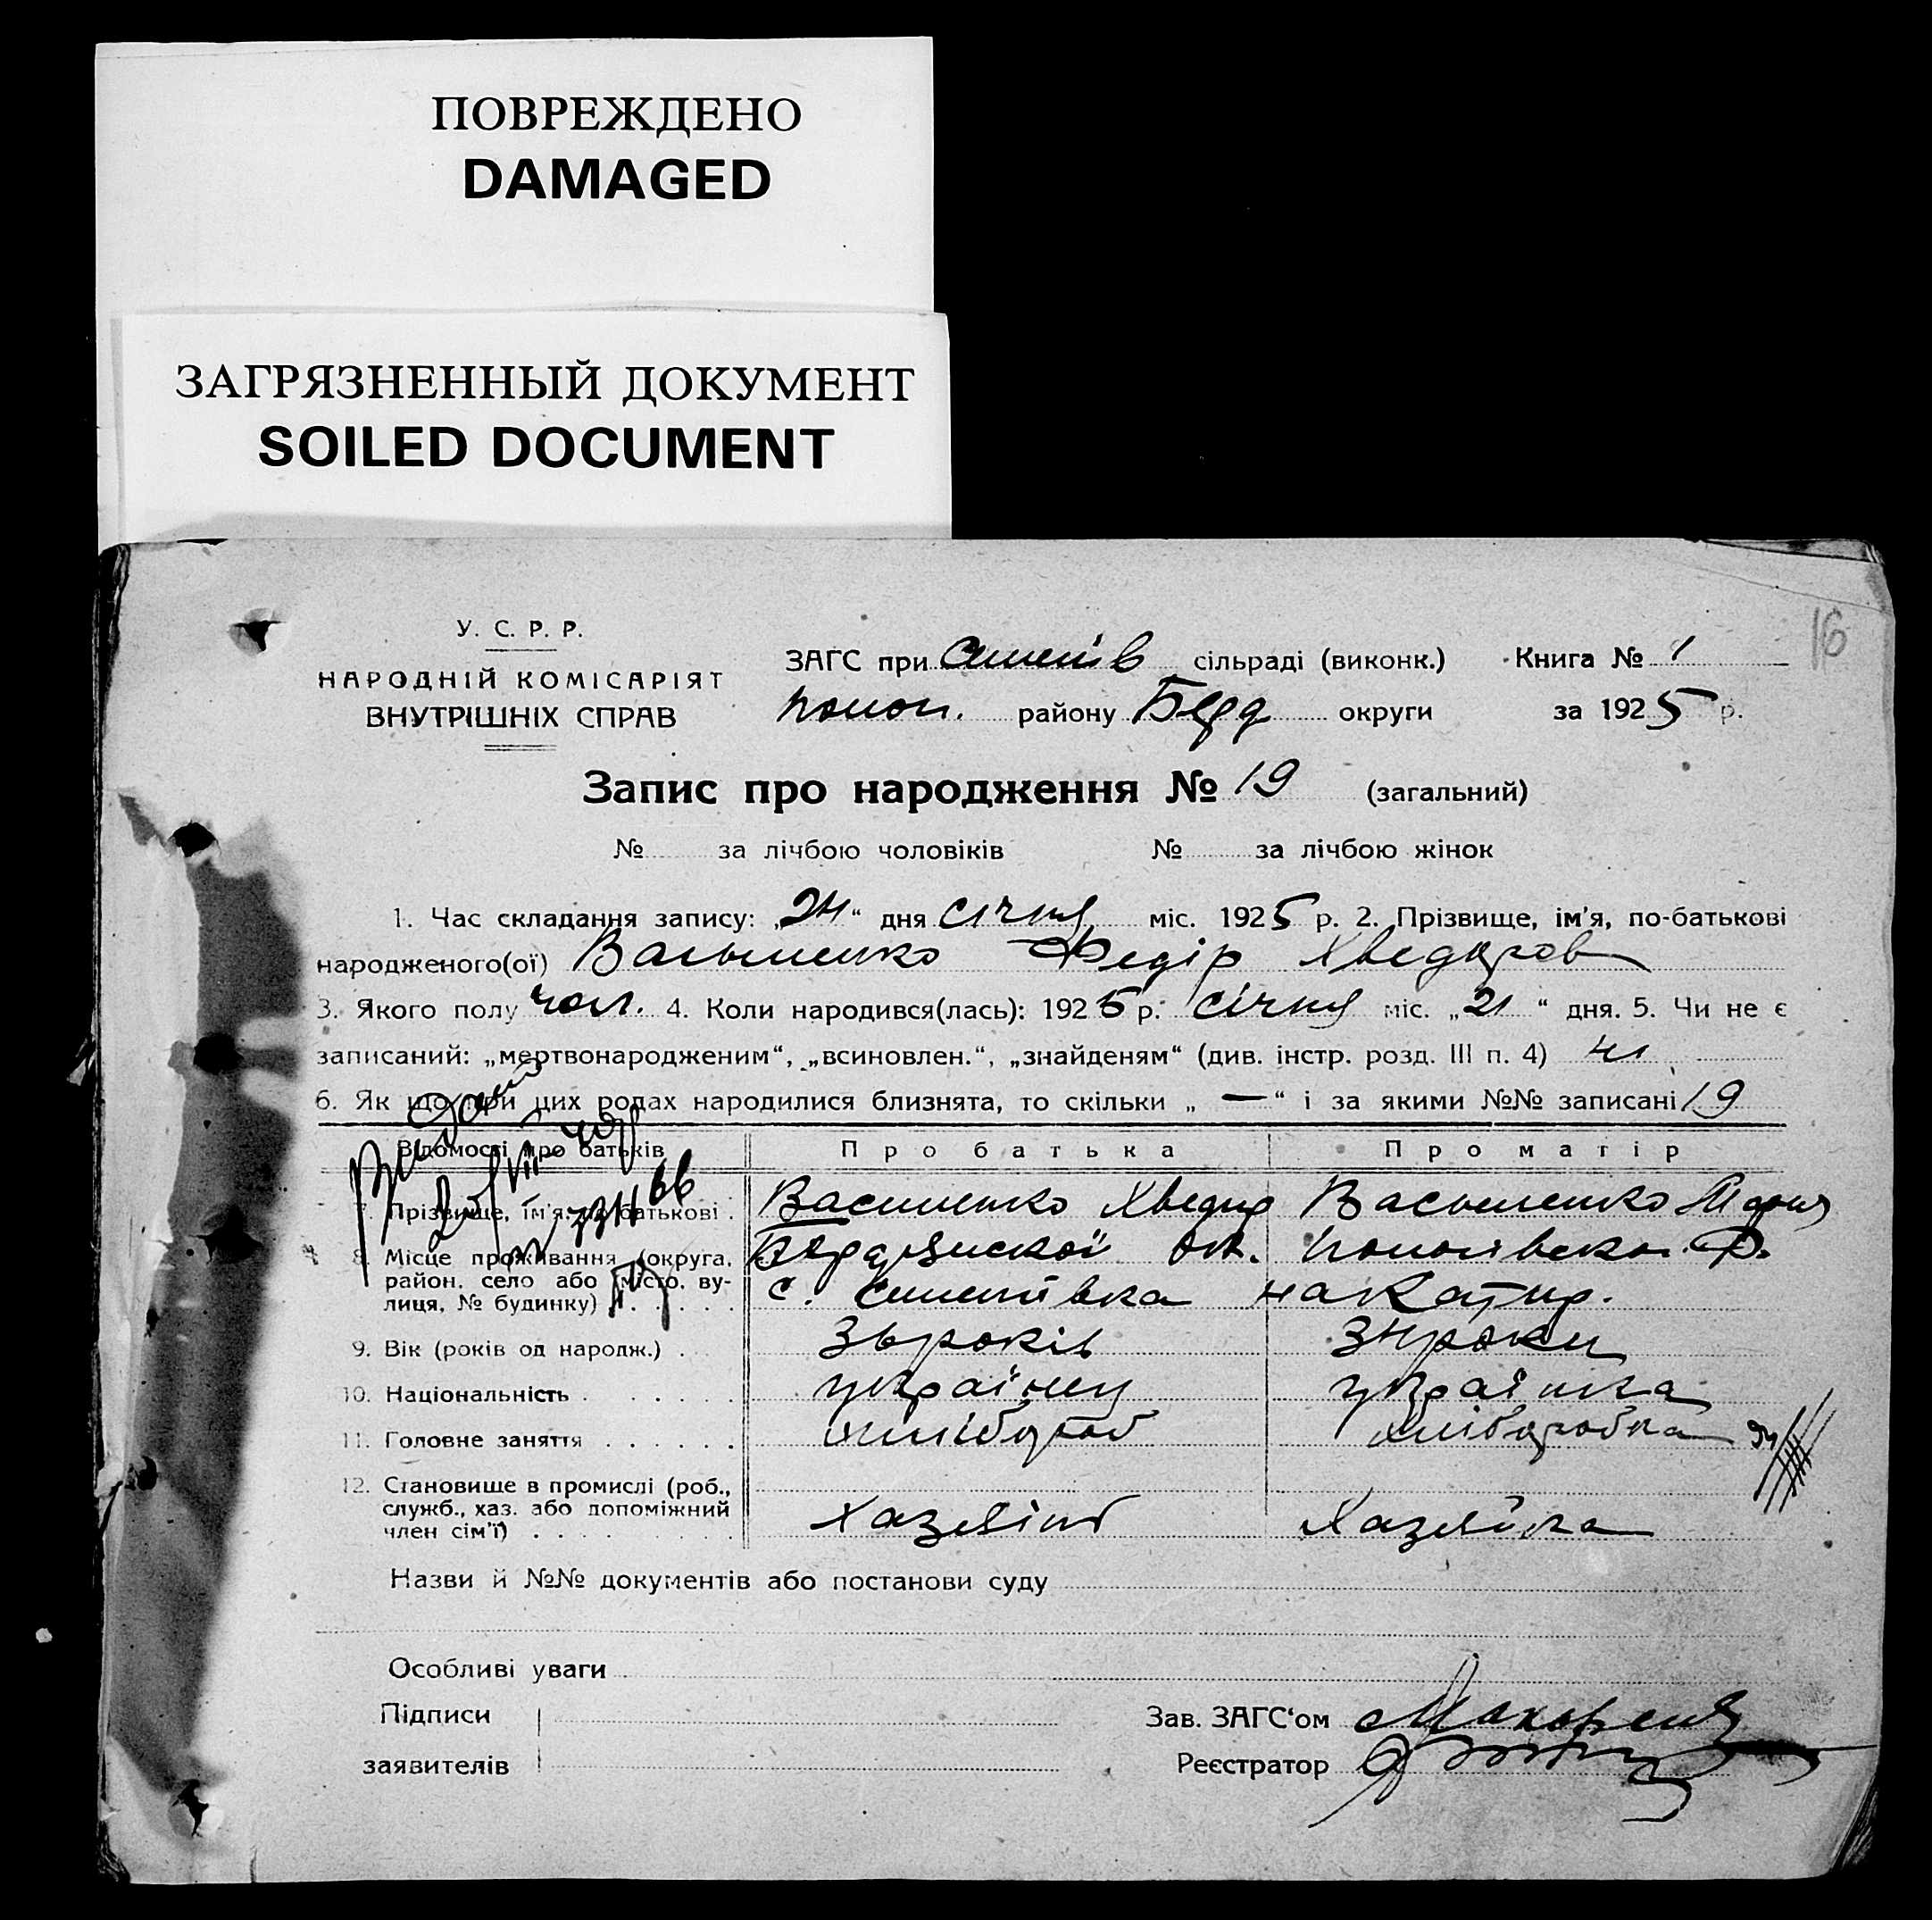 ПОВРЕЖДЕНО
DAMAGED
ЗАГРЯЗНЕННЫЙ ДОКУМЕНТ
SOILED DOCUMENT
16
У. С. Р. Р.
НАРОДНІЙ КОМІСАРІЯТ
ВНУТРІШНІХ СПРАВ
ЗАГС при сільраді (виконк.) Книга № 1
району Берд округи за 1925 р.
Запис про народження № 19 (загальний)
№ за лічбою чоловіків № за лічбою жінок
1. Час складання запису: „24“ дня січня міс. 1925 р. 2. Прізвище, ім'я, по-батькові
народженого(ої) Васыленко Федір Хведоров
3. Якого полу чол. 4. Коли народився(лась): 1925 р. січня міс. „21“ дня. 5. Чи не є
записаний: „мертвонародженим“, „всиновлен.“, „знайденям“ (див. інстр. розд. III п. 4) ні
6. Як що при цих родах народилися близнята, то скільки „ — “ і за якими №№ записані 19
Відомості про батьків Про батька Про матір
7. Прізвище, ім'я, по-батькові . Василенко Хведир Васыленко
8. Місце проживання (округа, район, село або місто, вулиця, № будинку) Бердянскої ок.
с.
9. Вік (років од народж.) . 36 років 34 роки
10. Національність . . . . . . українец українка
11. Головне заняття . . . . . . хлібороб хлібаробка
12. Становище в промислі (роб.,
служб., хаз. або допоміжний
член сім'ї) . . . . Хазяїн Хазяйка
Назви й №№ документів або постанови суду
Особливі уваги
Підписи
заявителів
Зав. ЗАГС'ом
Реєстратор